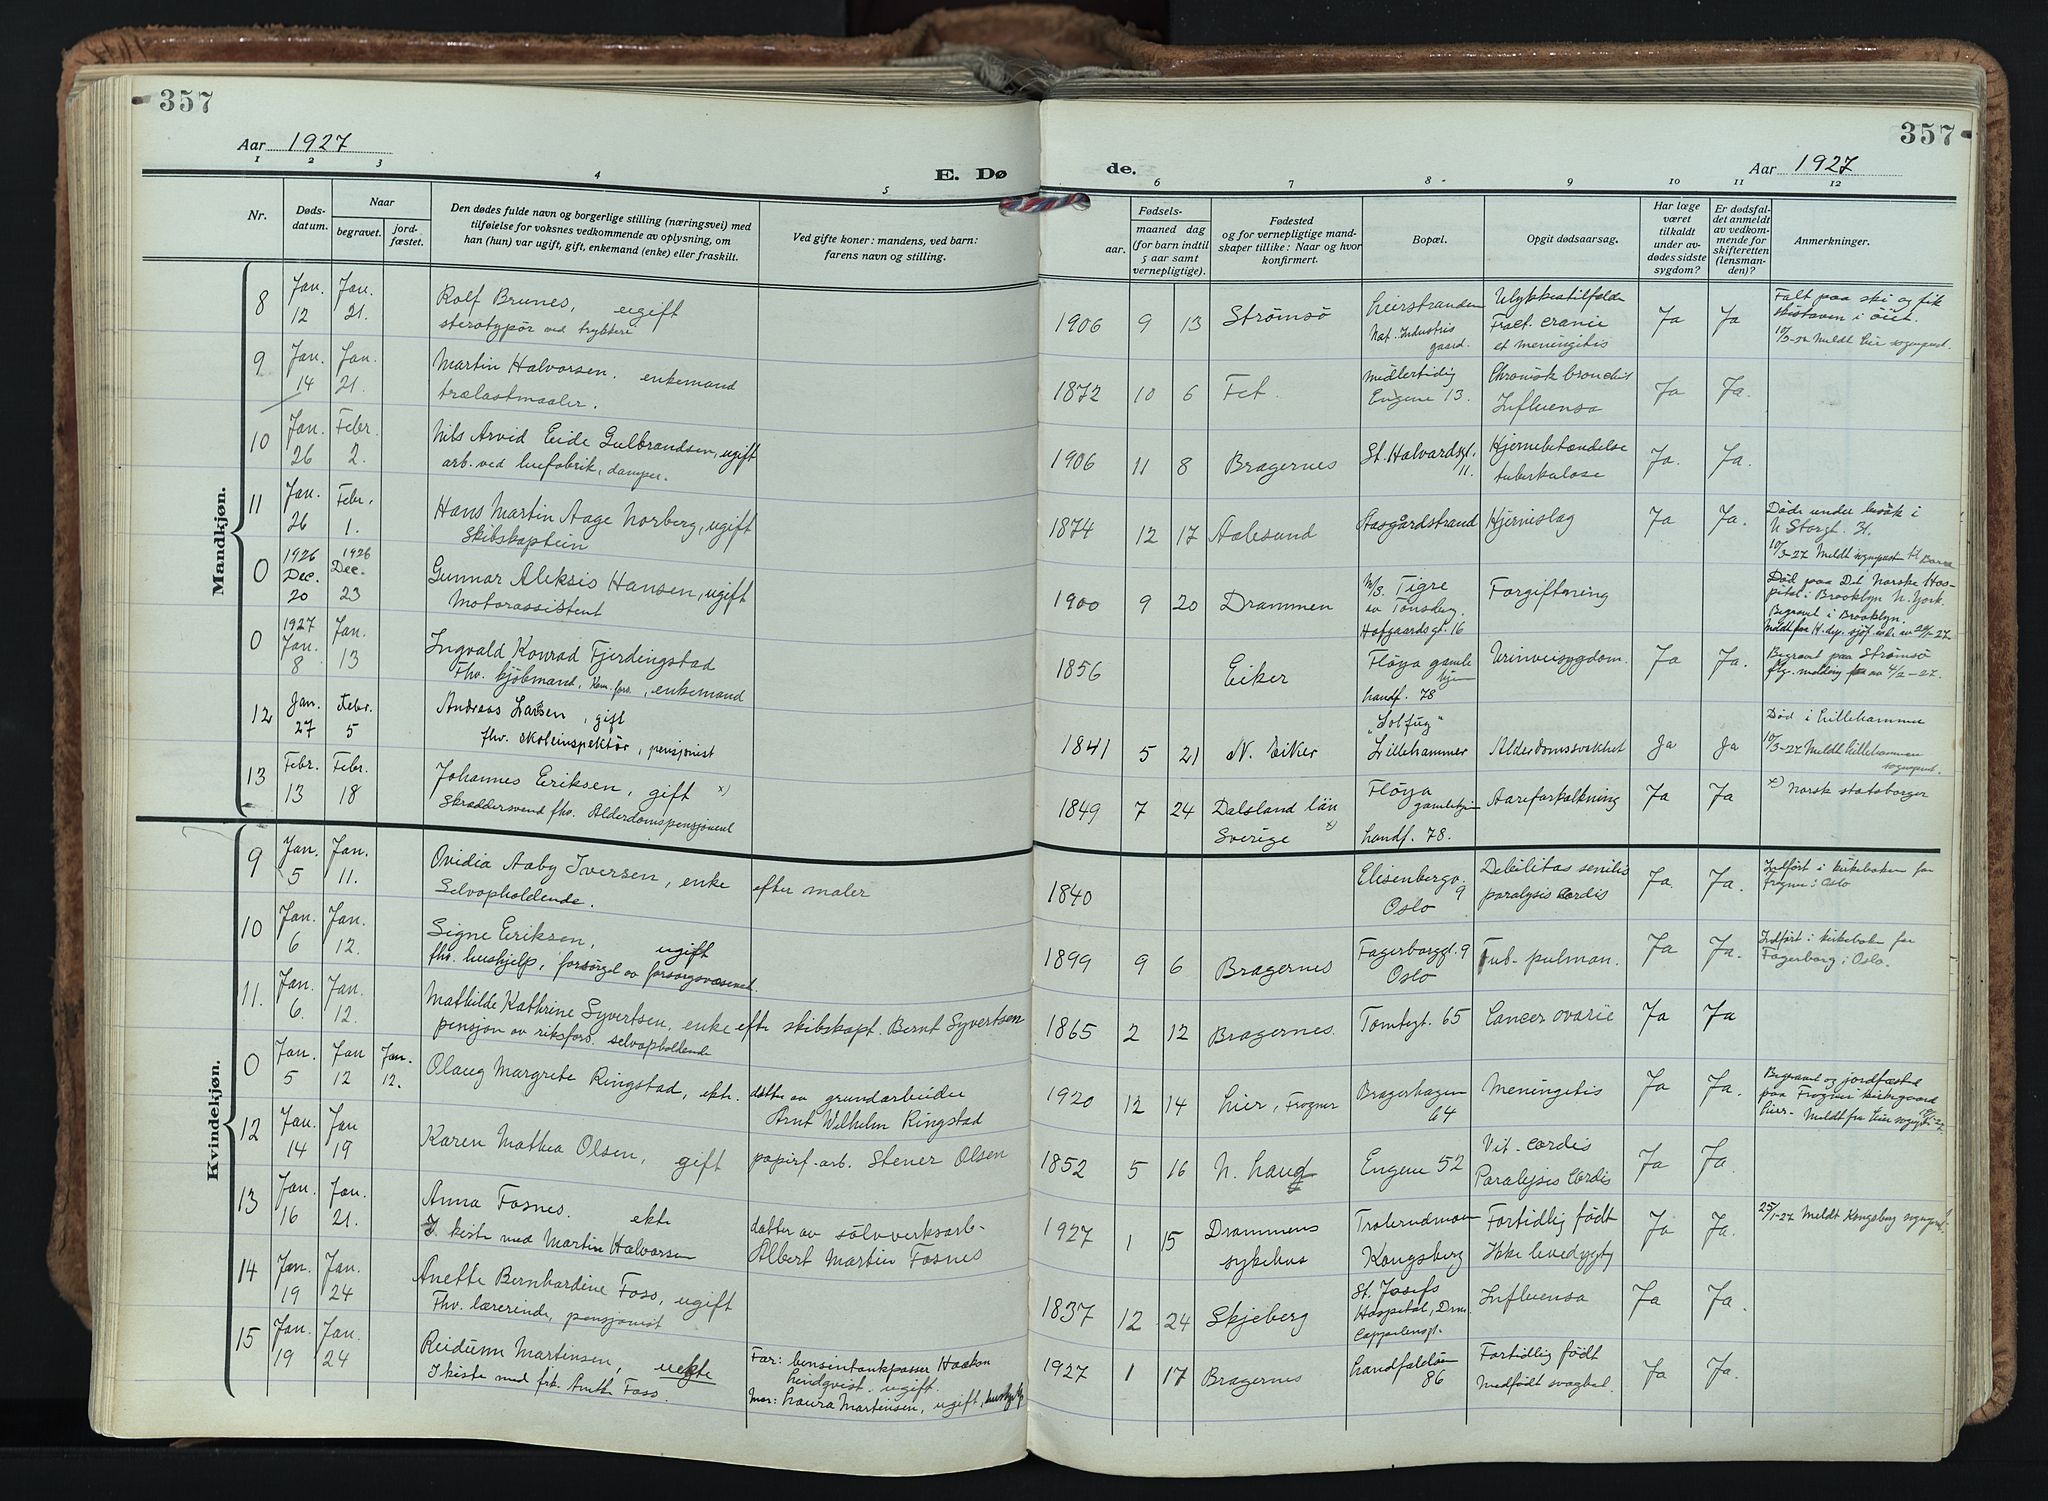 357
357
Aar 1927
Aar 1927
E. Dø
de.
1 2 3 4 5 6 7 8 9 10 11 12
Nr.
Døds-
datum.
Naar
begravet.
jord-
fæstet.
Den dødes fulde navn og borgerlige stilling (næringsvei) med
tilføielse for voksnes vedkommende av oplysning, om
han (hun) var ugift, gift, enkemand (enke) eller fraskilt.
Ved gifte koner: mandens, ved barn:
farens navn og stilling.
Fødsels-
aar. maaned dag
(for barn indtil
5 aar samt
vernepligtige).
Fødested
og for vernepligtige mand-
skaper tillike: Naar og hvor
konfirmert.
Bopæl.
Opgit dødsaarsag.
Har læge
været
tilkaldt
under av-
dødes sidste
sygdom?
Er dødsfal-
det anmeldt
av vedkom-
mende for
skifteretten
(lensman-
den)?
Anmerkninger.
Mandkjøn.
8 Jan. 12 Jan. 21. Rolf Brunes, ugift
sterotypør ved trykkeri
1906 9 13 Strømsø Lierstranden
Nat. Industris
gaard.
Ulykkestilfælde
Fract. cranie
et meningitis
Ja Ja
Falt paa ski og fik
skistaven i öiet.
10/3-27 Meldt Lier sognepr.
9 Jan. 14 Jan. 21. Martin Halvorsen. enkemand
trælastmaaler.
1872 10 6 Fet. Midlertidig
Engene 13.
Chronisk bronchit
Influensa
Ja Ja.
10 Jan. 26 Febr. 2. Nils Arvid Eide Gulbrandsen, ugift
arb. ved huefabrik, damper.
1906 11 8 Bragernes St. Halvardsgt.
11.
Hjernebetændelse
tuberkuløse
Ja. Ja.
11 Jan. 26 Febr. 1. Hans Martin Aage Norberg, ugift
Skibskaptein
1874 12 17 Aalesund Aasgårdstrand Hjerneslag Ja Ja.
Døde under besøk i
N. Storgt. 31.
10/3-27 Meldt sognepr. i Borre
0 1926 Dec. 20 1926 Dec. 23 Gunnar Aleksis Hansen, ugift
Motorassistent
1900 9 20 Drammen M/S. Tigre
av Tönsberg.
Hofgaardsgt. 16
Forgiftning
Död paa Det Norske Hos-
pital i Brooklyn N. York.
Begravet i Brooklyn.
0 1927 Jan. 8 Jan. 13 Ingvald Konrad Fjerdingstad
Fhv. kjöbmand, Kom. fors., enkemand
1856 Eiker Fløya gamle
hjem
Landf. 78
Urinveisygdom. Ja Ja.
Begravet paa Strømsø
flg. melding av 4/2-27.
12 Jan. 27 Febr. 5 Andreas Larsen, gift
fhv. skoleinspektör, pensjonist
1841 5 21 N. Eiker "Solfug"
Lillehammer Alderdomssvekket Ja Ja
Död i Lillehammer
10/3-27 Meldt Lillehammer
sognepr.
13 Febr. 13 Febr. 18 Johannes Eriksen, gift x)
Skræddersvend fhv. Alderdomspensjonist
1849 7 24 Dalsland län
Sverige x)
Fløya
gamlehjem
Landf. 78.
Aareforkalkning Ja Ja
x) Norsk statsborger
Kvindekjøn.
9 Jan. 5 Jan. 11. Ovidia Aaby Iversen, enke efter maler
Selvopholdende.
1840 Elisenbergv.
9
Oslo
Debilitas senilis
paralysis cordis
Ja. Ja.
Indført i kirkeboken for
Frogner i Oslo
10 Jan. 6 Jan. 12. Signe Eriksen, ugift
fhv. hushjelp, forsørget av forsorgsvæsenet.
1899 9 6 Bragernes Fagerborggt. 9
Oslo
Tub. pulman. Ja Ja.
Indført i kirkeboken for
Fagerborg i Oslo.
11. Jan. 6. Jan. 12. Mathilde Kathrine Syvertsen, enke efter skibskapt. Bernt Syvertsen
pensjon av riksfors. selvopholdende
1865 2 12 Bragernes. Tomtegt. 65 Cancer ovarie Ja Ja
0 Jan. 5 Jan 12 Jan. 12. Olaug Margrete Ringstad, ekte. datter av grundarbeider
Arnt Wilhelm Ringstad
1920 12 14 Lier, Frogner Bragerhagen
64
Meningitis Ja Ja.
Begravet og jordfæstet
paa Frogner kirkegaard
Lier. Meldt fra Lier sognepr.
12 Jan. 14 Jan 19 Karen Mathea Olsen, gift papirf. arb. Stener Olsen
1852 5 16 N. Haug Engene 52 Vit. cordis
Paralysis Cordis
Ja Ja.
13 Jan. 16 Jan. 21. Anna Fosnes. ekte datter av sölvverksarb.
I kiste med Martin Halvorsen Albert Martin Fosnes
1927 1 15 Drammens
sykehus
Kongsberg
Fortidlig født
Ikke levedygtig
Ja Ja.
25/1-27 Meldt Kongsberg sognepr.
14 Jan. 19 Jan. 24 Anette Bernhardine Foss, ugift
Fhv. lærerinde, pensjonist
1837 12 24 Skjeberg St. Josefs
Hospital, Drm.
Cappelensgt.
Influensa Ja Ja.
15 Jan. 19 Jan. 24 Reidunn Martinsen, uekte
I kiste med frk. Anette Foss.
Far: bensintankpasser Haakon
Lindqvist. ugift.
Mor: Laura Martinsen, ugift, hushjelp
1927 1 17 Bragernes Landfaldöen
86
Fortidlig født
Medfödt svaghet.
Ja Ja.